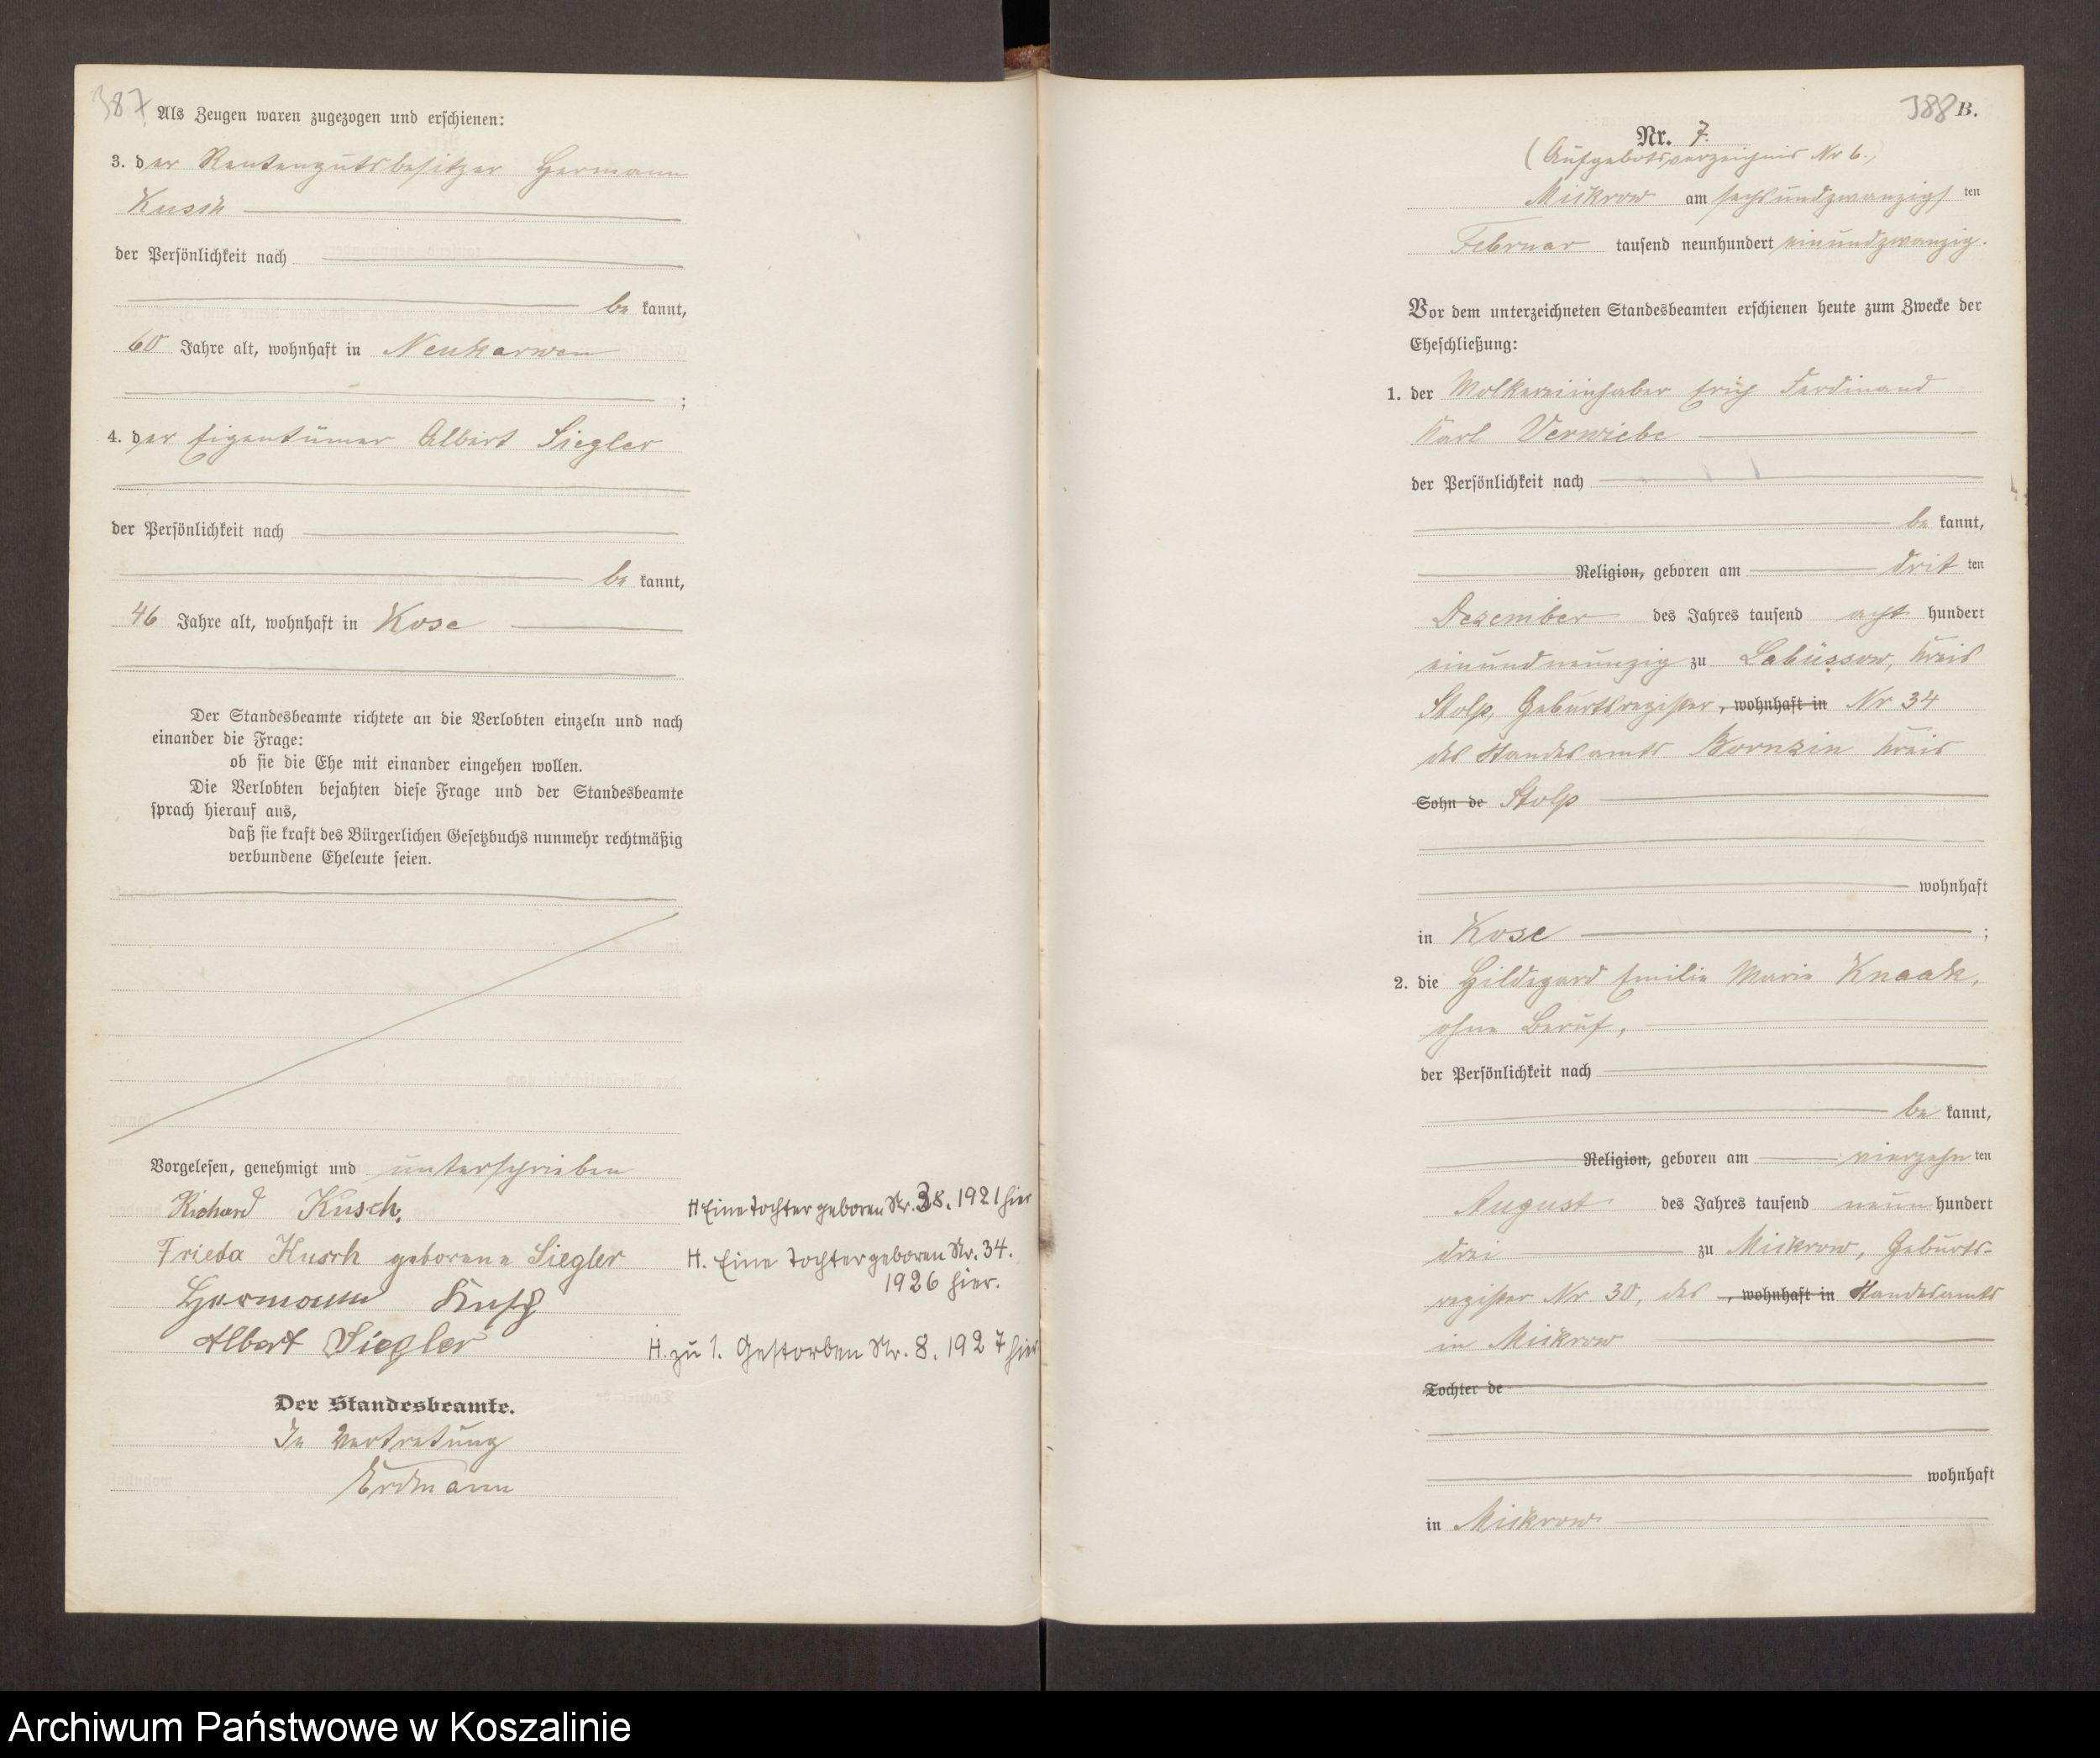 387
Als Zeugen waren zugezogen und erschienen:
3. der Rentengutsbesitzer Hermann
Kusch
der Persönlichkeit nach
be kannt,
60 Jahre alt, wohnhaft in Neukarwen
;
4. der Eigentümer Albert Siegler
der Persönlichkeit nach
be kannt,
46 Jahre alt, wohnhaft in Kose
Der Standesbeamte richtete an die Verlobten einzeln und nach
einander die Frage:
ob sie die Ehe mit einander eingehen wollen.
Die Verlobten bejahten diese Frage und der Standesbeamte
sprach hierauf aus,
daß sie kraft des Bürgerlichen Gesetzbuchs nunmehr rechtmäßig
verbundene Eheleute seien.
Vorgelesen, genehmigt und unterschrieben
Richard Kusch.
Frieda Kusch geborene Siegler
Hermann Kusch
Albert Siegler
Der Standesbeamte.
In Vertretung
Erdmann
H Eine Tochter geboren Nr. 38. 1921 hier
H. Eine Tochter geboren Nr. 34.
1926 hier.
H. zu 1. Gestorben Nr. 8. 1927 hier
388 B.
Nr. 7.
(Aufgebotsverzeichnis Nr 6.)
Mickrow am sechsundzwanzigs ten
Februar tausend neunhundert einundzwanzig.
Vor dem unterzeichneten Standesbeamten erschienen heute zum Zwecke der
Eheschließung:
1. der Molkereiinhaber Erich Ferdinand
Karl Verwiebe
der Persönlichkeit nach
be kannt,
Religion, geboren am drit ten
Dezember des Jahres tausend acht hundert
einundneunzig zu Labüssow, Kreis
Stolp, Geburtsregister , wohnhaft in Nr 34
des Standesamts Bornzin Kreis
Sohn de Stolp
wohnhaft
in Kose ;
2. die Hildegard Emilie Marie Knaak,
ohne Beruf,
der Persönlichkeit nach
be kannt,
Religion, geboren am vierzehn ten
August des Jahres tausend neun hundert
drei zu Mickrow, Geburts-
register Nr 30, des , wohnhaft in Standesamts
in Mickrow
Tochter de
wohnhaft
in Mickrow
Archiwum Państwowe w Koszalinie